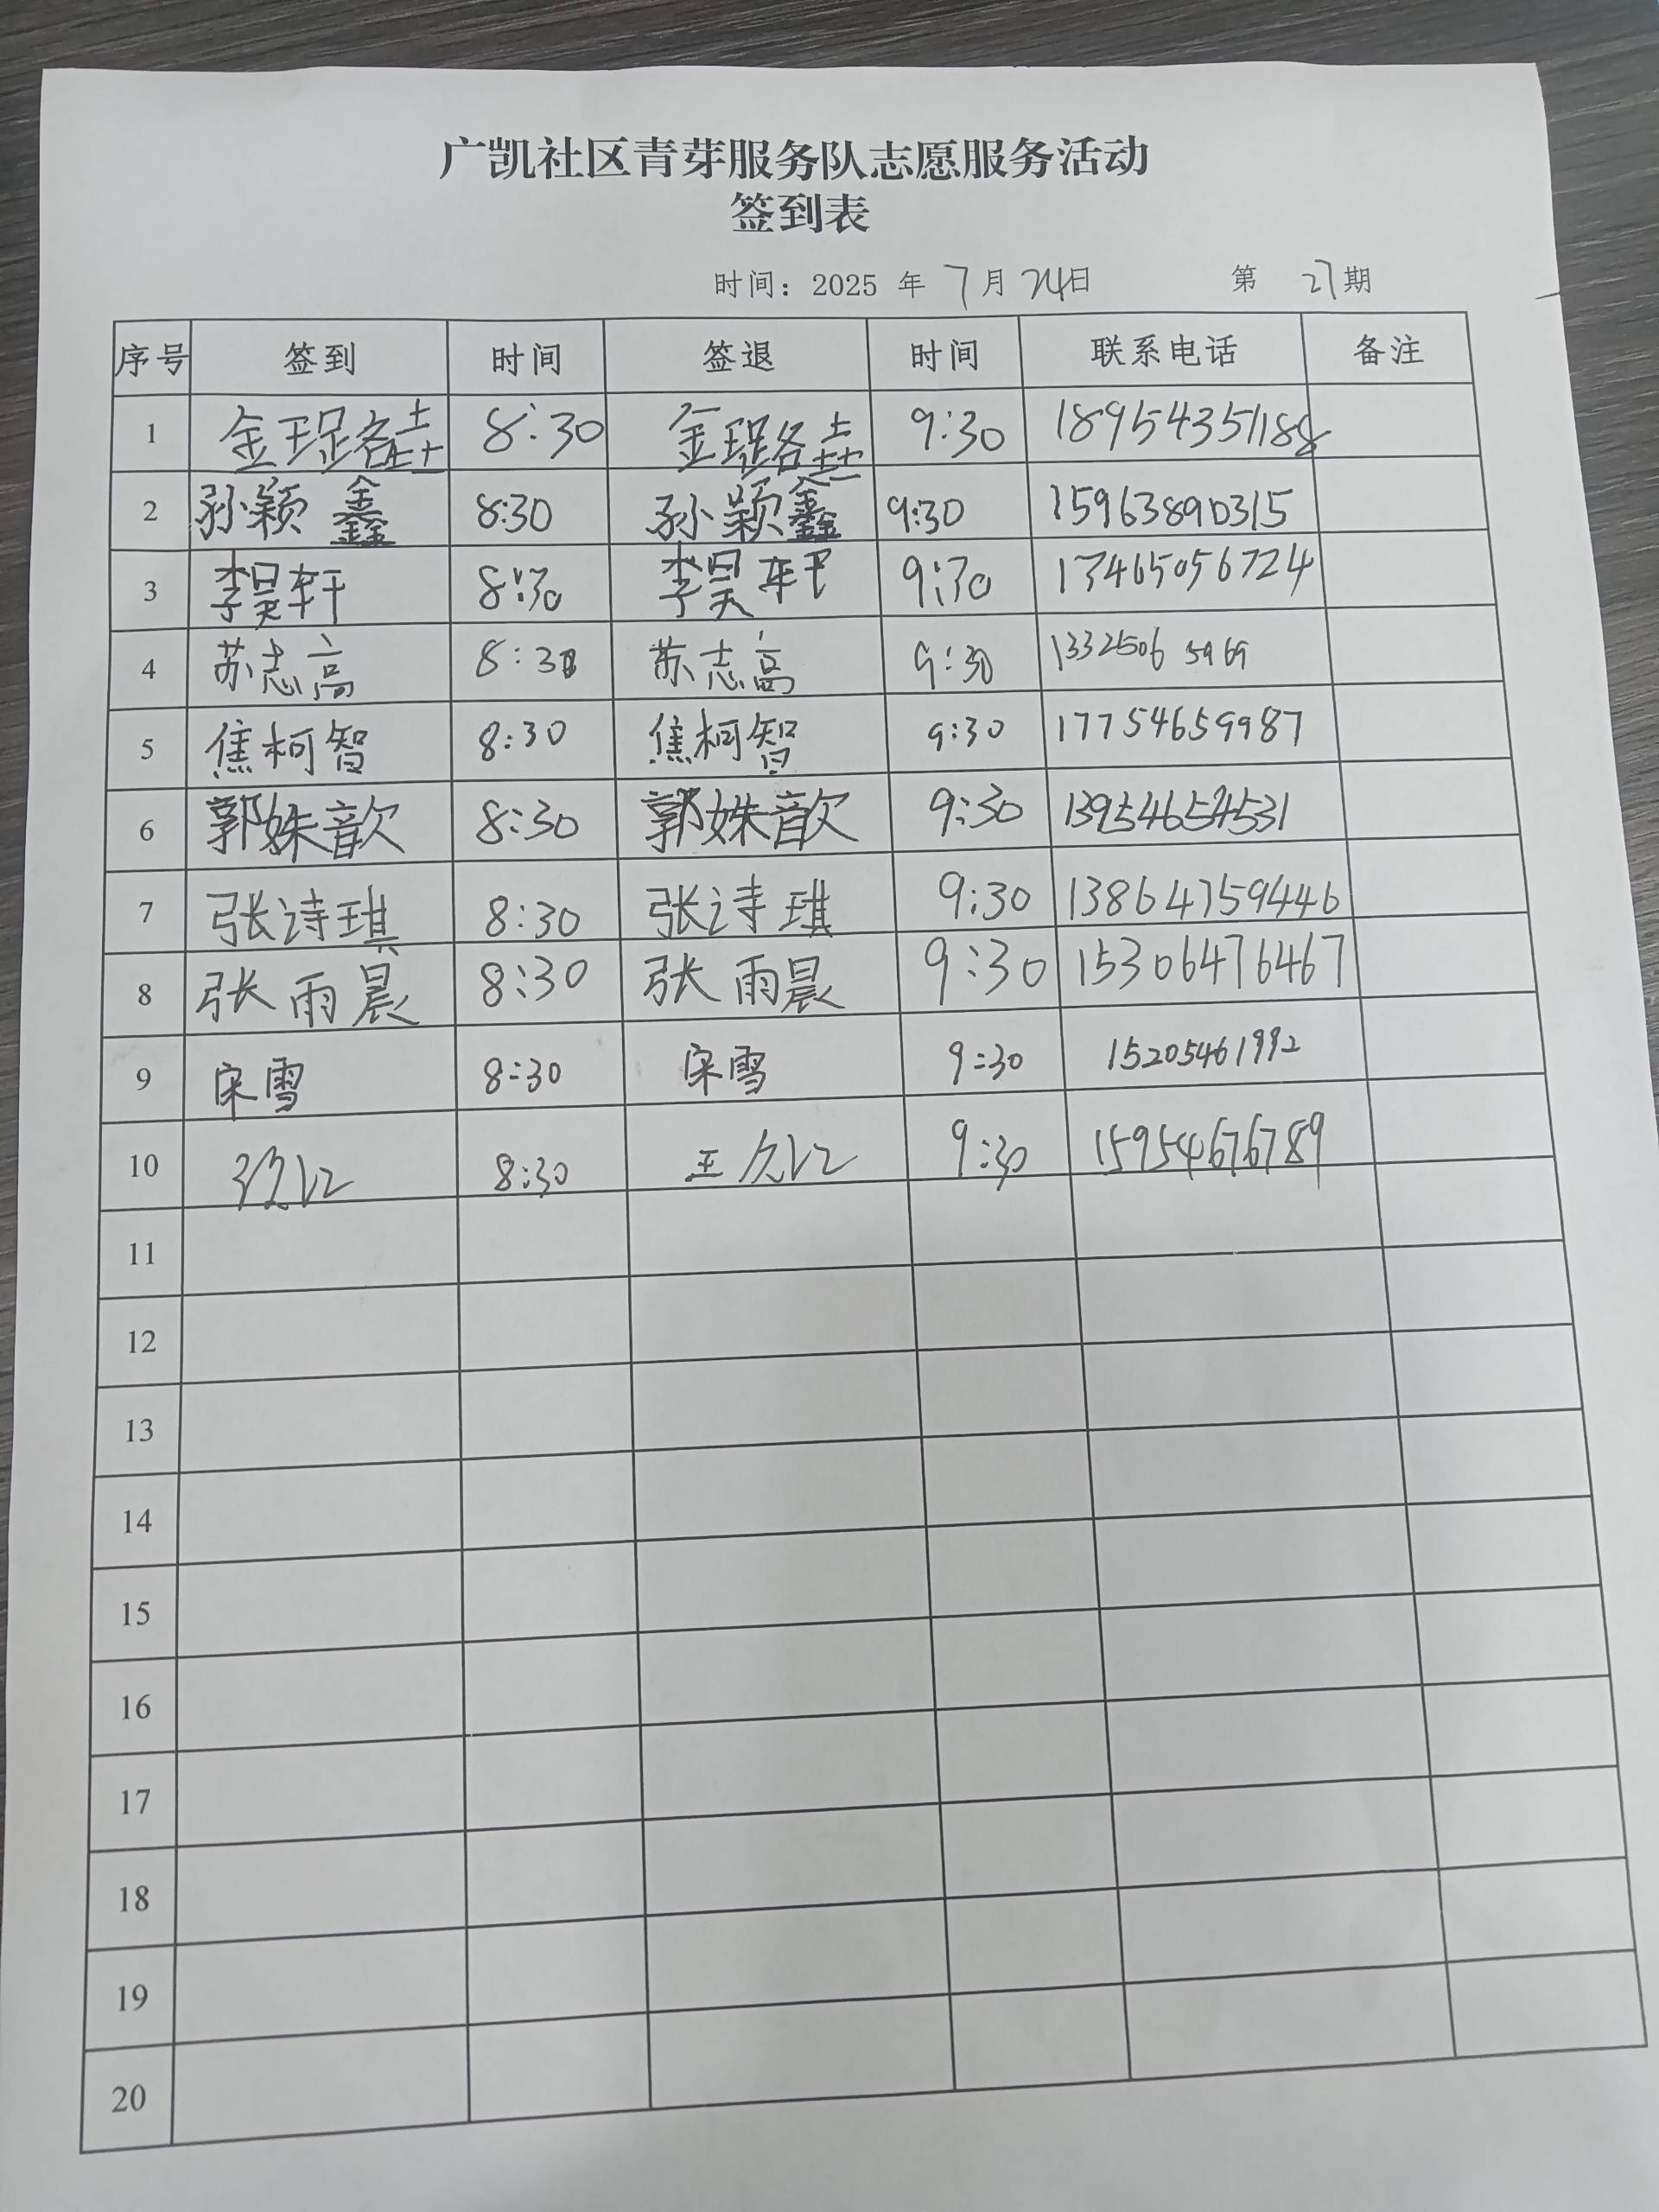 广凯社区青芽服务队志愿服务活动
签到表
时间：2025 年 7 月 24 日 第 27 期
序号 签到 时间 签退 时间 联系电话 备注
1 金珵垚 8:30 金珵垚 9:30 18954351188
2 孙颖鑫 8:30 孙颖鑫 9:30 15963890315
3 李昊轩 8:30 李昊轩 9:30 17465056724
4 苏志高 8:30 苏志高 9:30 13325065969
5 焦柯智 8:30 焦柯智 9:30 17754659987
6 郭姝歆 8:30 郭姝歆 9:30 13954654531
7 张诗琪 8:30 张诗琪 9:30 13864759446
8 张雨晨 8:30 张雨晨 9:30 15306476467
9 宋雪 8:30 宋雪 9:30 15205461992
10 8:30 王 9:30 15954676789
11
12
13
14
15
16
17
18
19
20